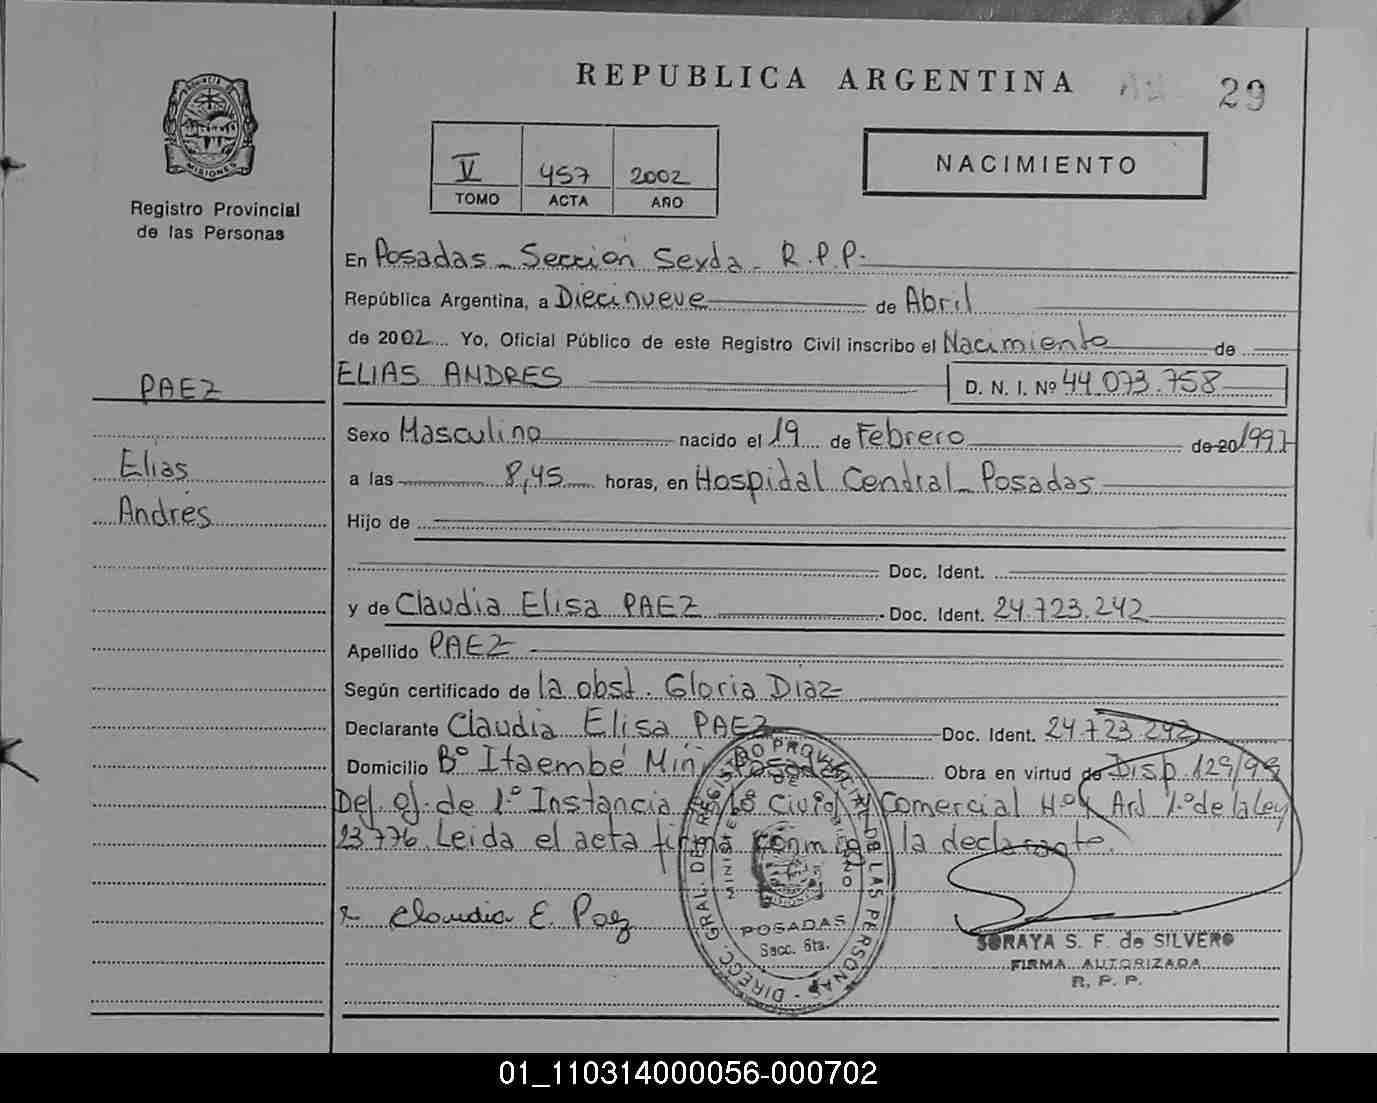 REPUBLICA ARGENTINA
29
MISIONES
Registro Provincial
de las Personas
V 457 2002
TOMO ACTA AÑO
NACIMIENTO
En Posadas - Sección Sexta - R.P.P.
República Argentina, a Diecinueve de Abril
de 2002 Yo, Oficial Público de este Registro Civil inscribo el Nacimiento de
ELIAS ANDRES D. N. I. Nº 44.073.758
PAEZ
Elias
Andrés
Sexo Masculino nacido el 19 de Febrero de 20 1997
a las 8,45 horas, en Hospital Central - Posadas
Hijo de
Doc. Ident.
y de Claudia Elisa PAEZ Doc. Ident. 24.723.242
Apellido PAEZ
Según certificado de la obst. Gloria Diaz
Declarante Claudia Elisa PAEZ Doc. Ident. 24.723.242
Domicilio Bº Itaembé Miní Posadas Obra en virtud de Disp. 129/98
Def. of. de 1º Instancia Civil Comercial Art 1º de la Ley
23.776. Leida el acta firma conmigo la declarante.
Claudia E. Paez
DIRECC. GRAL. DEL REGISTRO PROVINCIAL DE LAS PERSONAS
POSADAS
Secc. 6ta.
SORAYA S. F. de SILVERO
FIRMA AUTORIZADA
R. P. P.
01_110314000056-000702